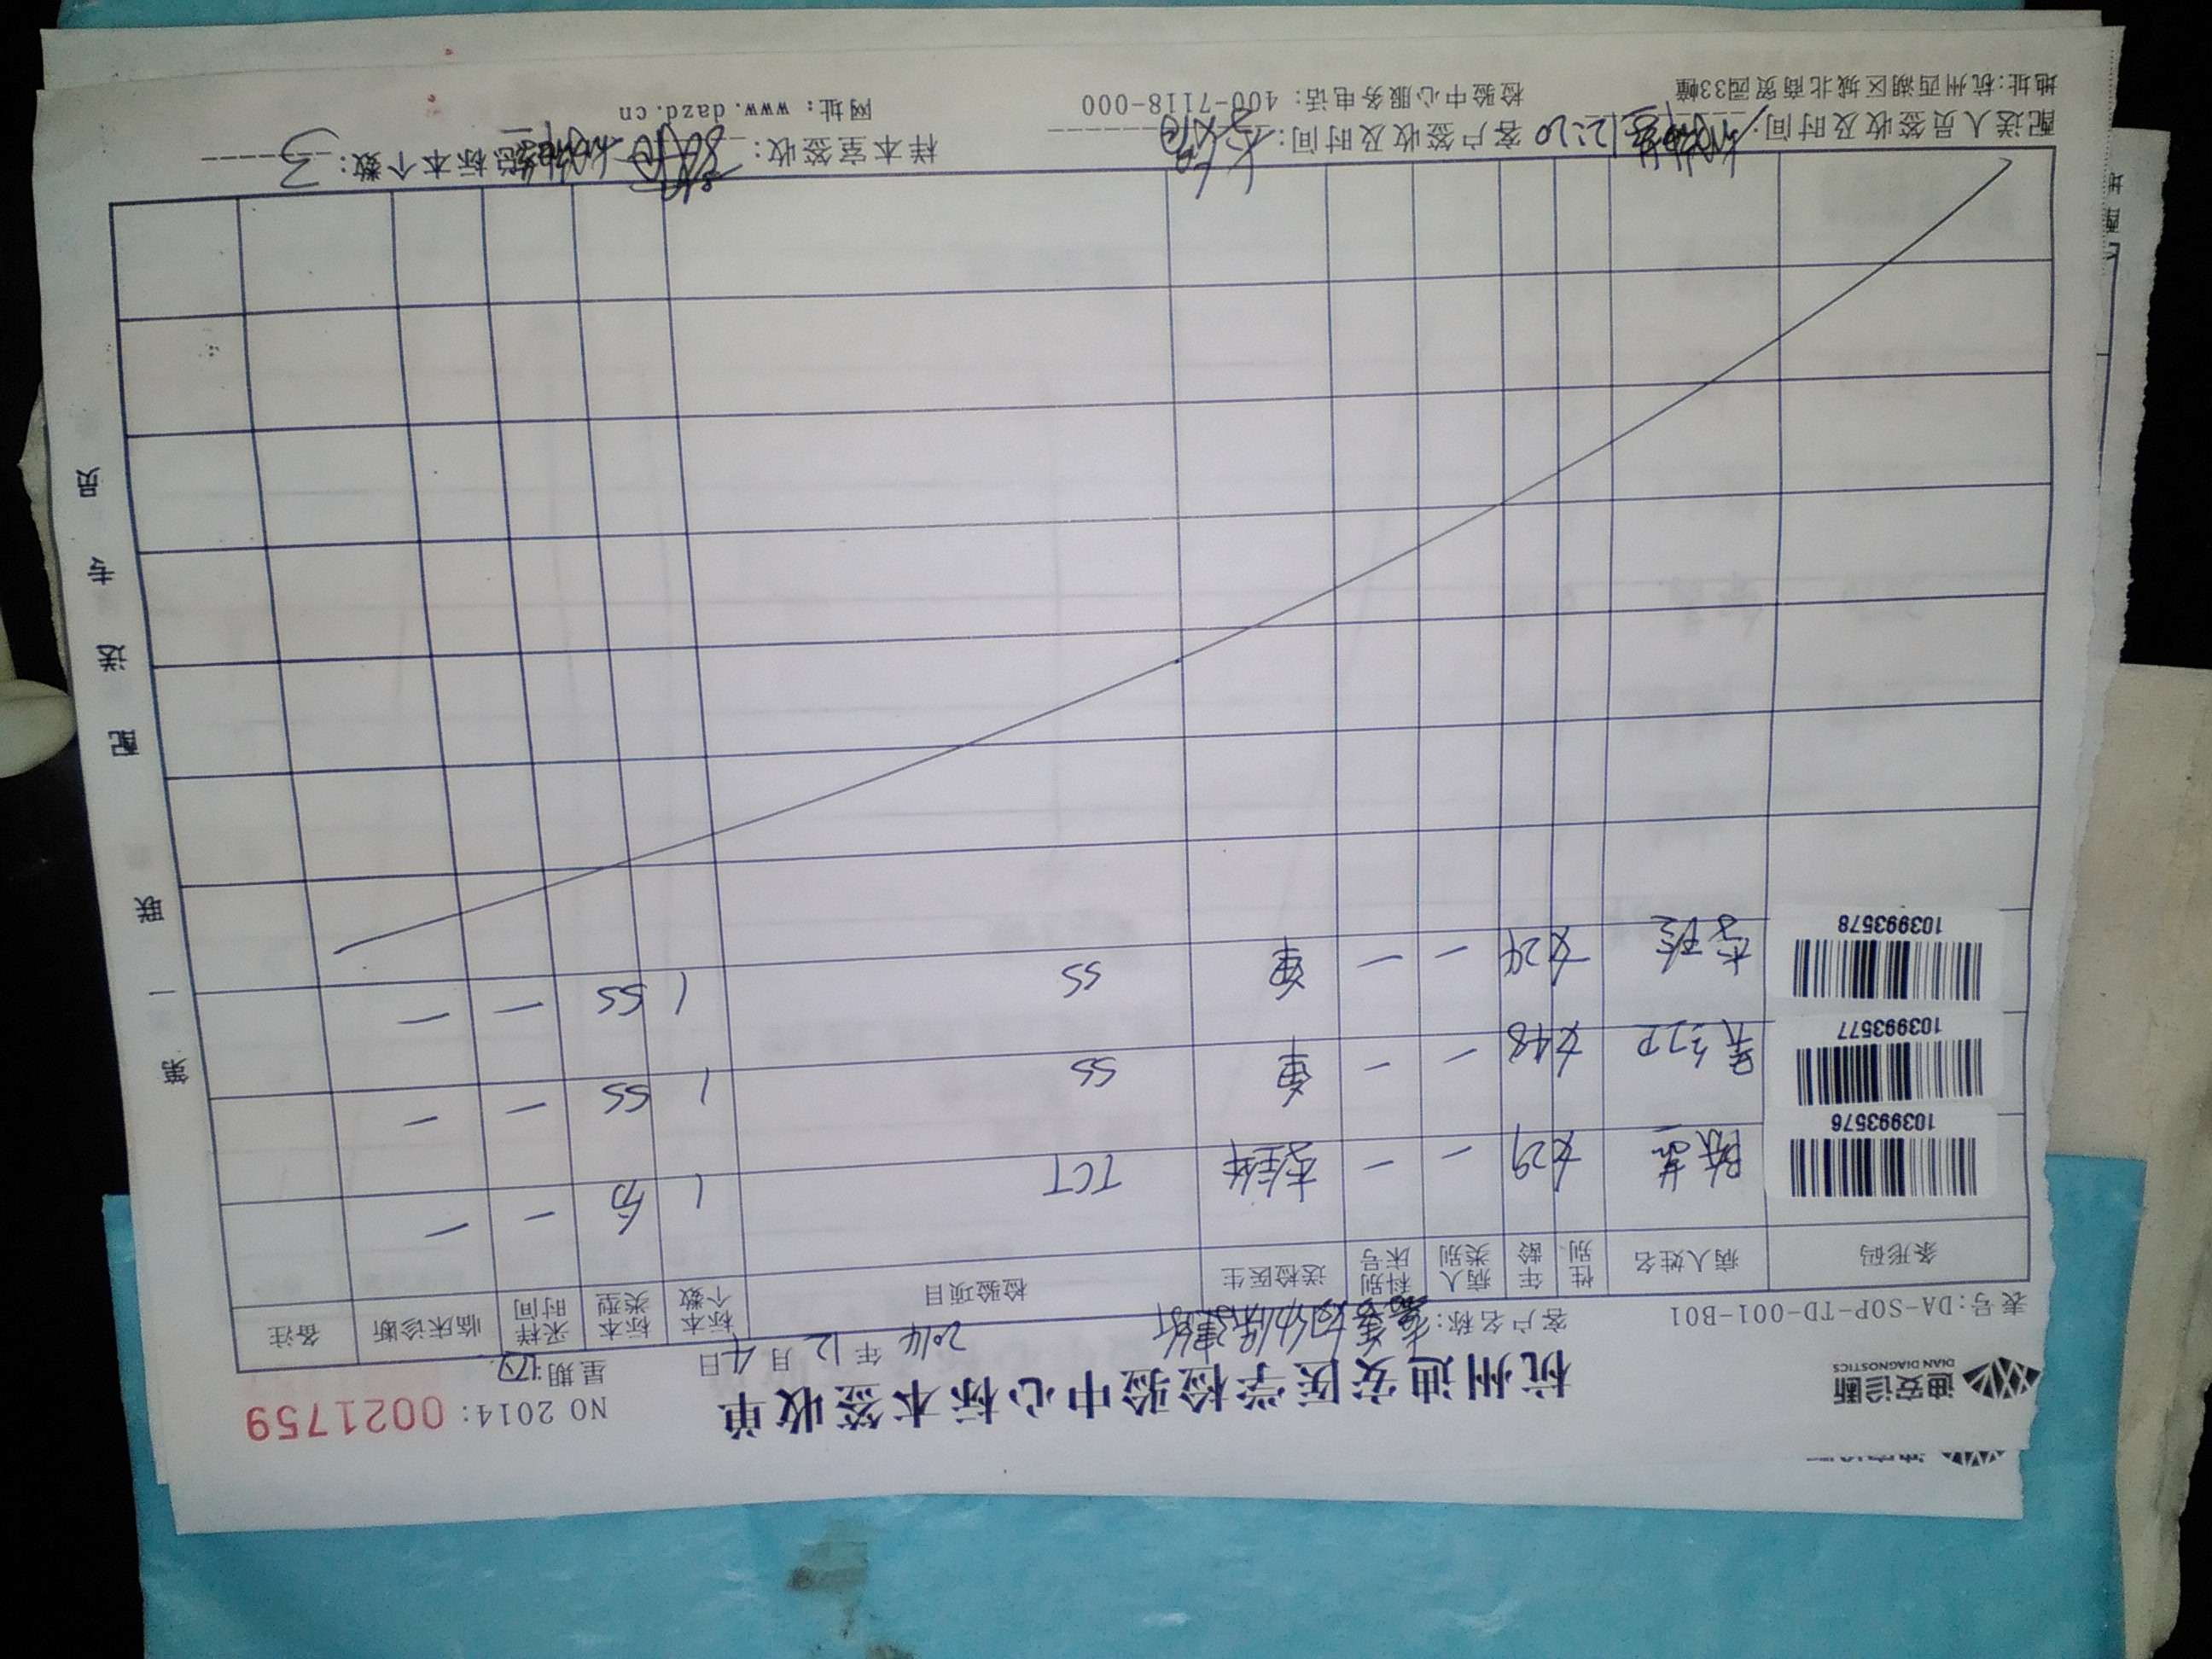 迪安诊断
DIAN DIAGNOSTICS
杭州迪安医学检验中心标本签收单
NO 2014: 0021759
表号:DA-SOP-TD-001-B01
客户名称:嘉善妇幼保健所 2014年12月4日 星期:四
条形码 病人姓名 性别 年龄 病人类别 科别床号 送检医生 检验项目 标本个数 标本类型 采样时间 临床诊断 备注
103993576 陈 女 29 — — 李 TCT 1 分 — —
103993577 吴红 女 48 — — 单 SS 1 SS — —
103993578 李玲 女 24 — — 单 SS 1 SS — —
第一联 配送专员
配送人员签收及时间: 12:20 客户签收及时间: 样本室签收: 总标本个数:3
地址:杭州西湖区城北商贸园33幢 检验中心服务电话: 400-7118-000 网址: www.dazd.cn